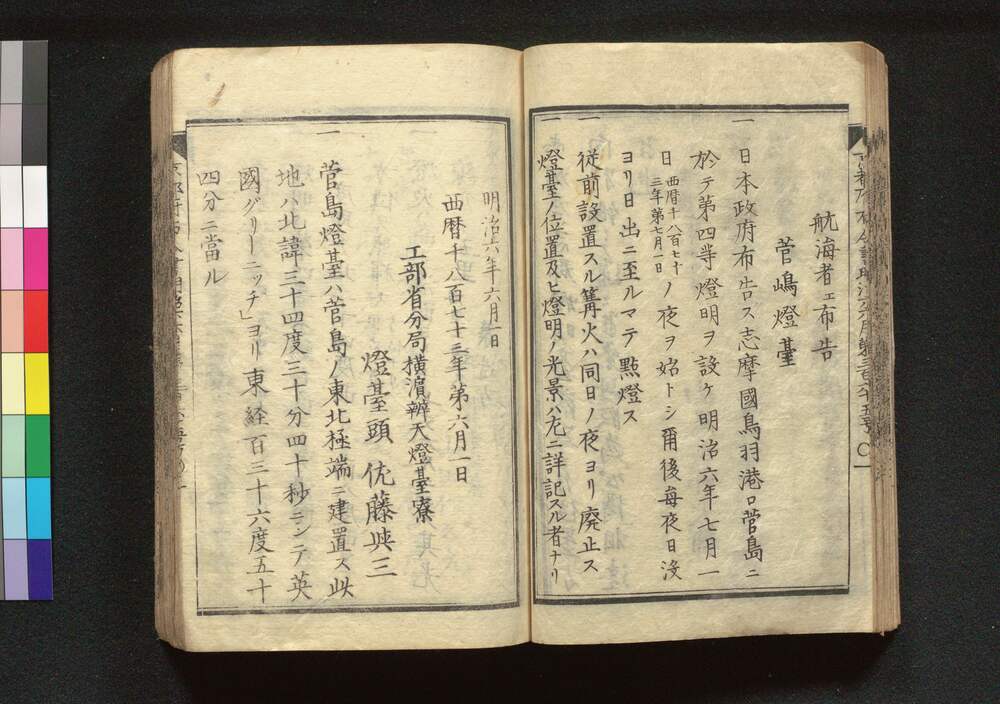 航海者ェ布告
菅嶋燈臺
一
日本政府布告ス志摩國鳥羽港口菅島ニ
於テ第四等燈明ヲ設ケ明治六年七月一
日西暦十八百七十三年第七月一日ノ夜ヲ始トシ爾後毎夜日沒
ヨリ日出ニ至ルマテ點燈ス
一
従前設置スル篝火ハ同日ノ夜ヨリ廃止ス
一
燈臺ノ位置及ヒ燈明ノ光景ハ左ニ詳記スル者ナリ
明治六年六月一日
西暦千八百七十三年第六月一日
工部省分局横濵辨天燈臺寮
燈臺頭 佐藤與三
一
菅島燈臺ハ菅島ノ東北極端ニ建置ス此
地ハ北諱三十四度三十分四十秒ニシテ英
國グリーニッチ」ヨリ東経百三十六度五十
四分ニ當ル